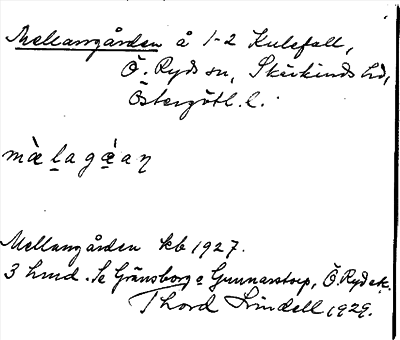 Mellangården å 1-2 Kulefall,
Ö. Ryds sn, Skärkinds hd,
Östergötl. l.
mæ̀l̠agæ̠̀aꞃ
Mellangården kb 1927.
3 hmd. Se Gränsborg o Gunnarstorp, Ö. Ryd ek.
Thord Lindell 1929.